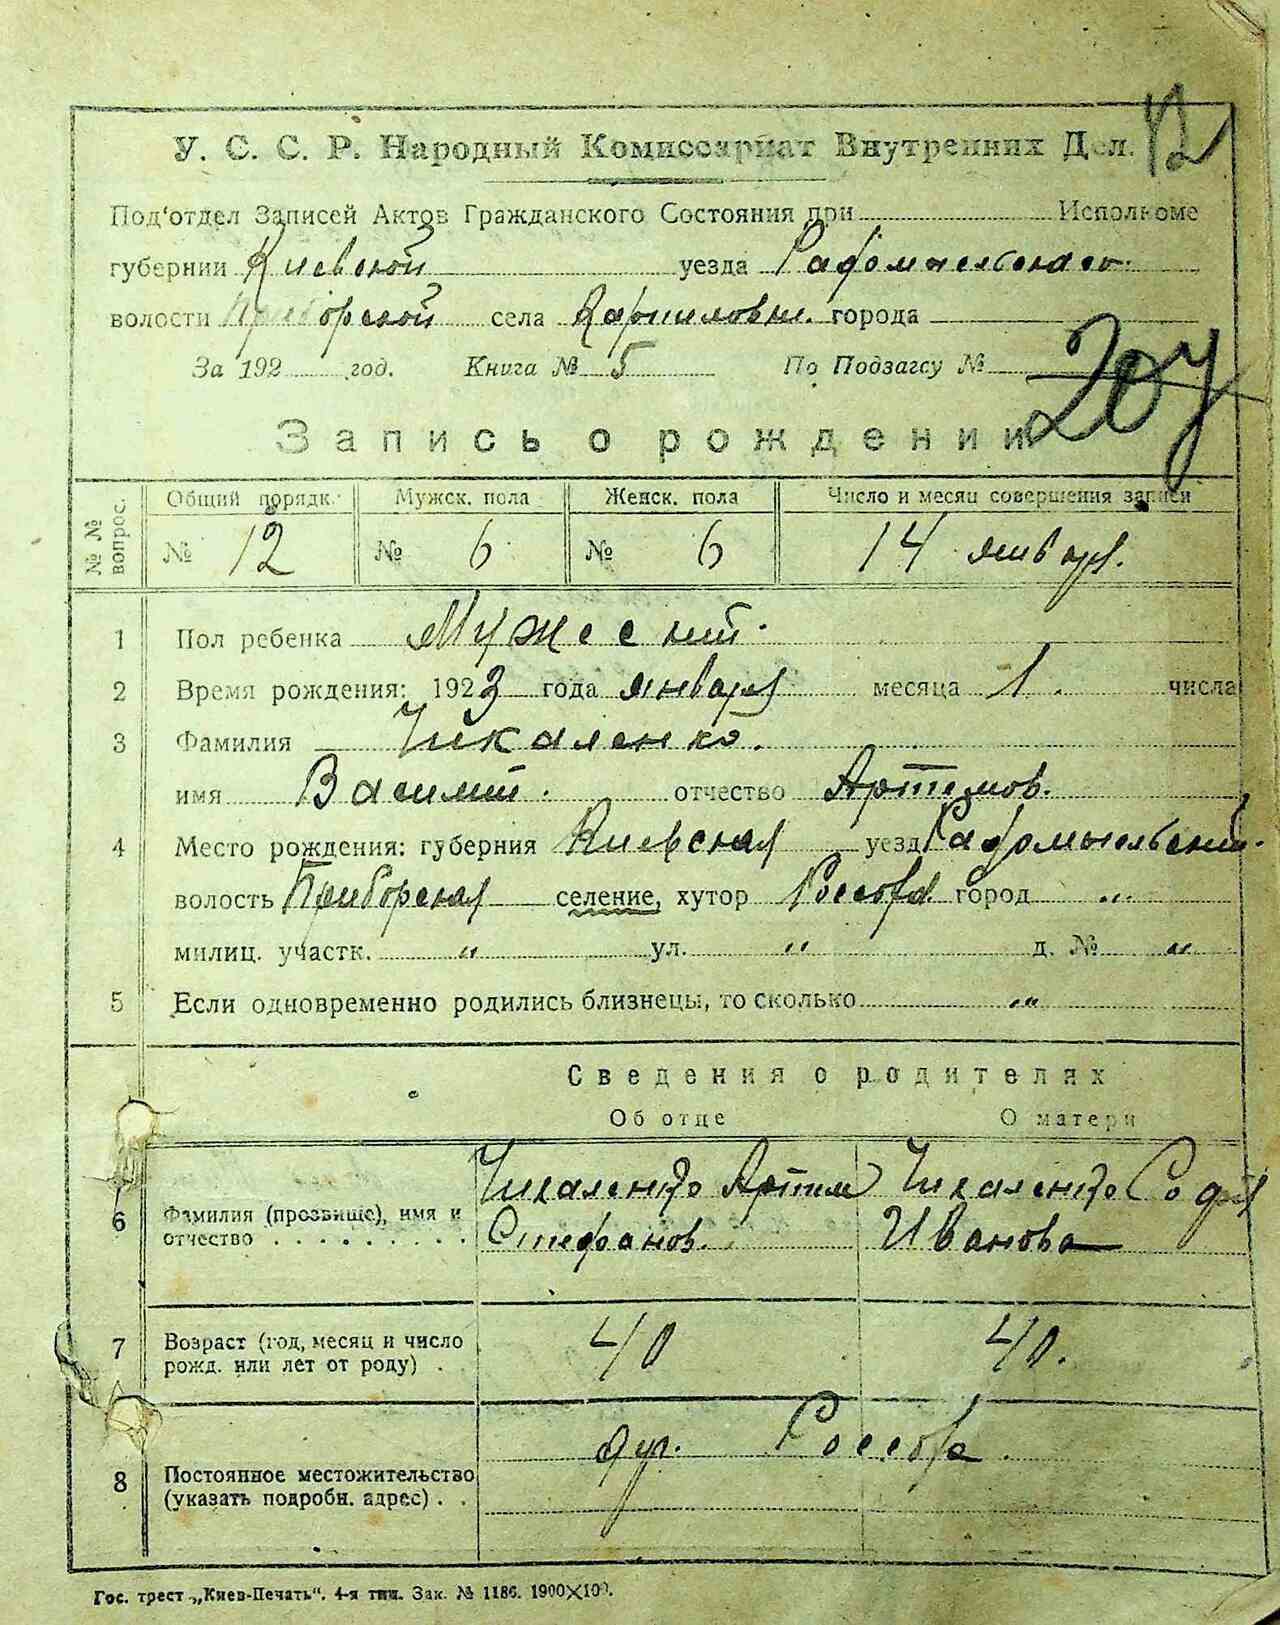 12
У. С. С. Р. Народный Комиссариат Внутренних Дел.
Под'отдел Записей Актов Гражданского Состояния при Исполкоме
губернии Киевской уезда Радомысльского
волости Приборской села Карпиловки города
За 192 год. Книга № 5 По Подзагсу №
Запись о рождении
№ № вопрос. Общий порядк. Мужск. пола Женск. пола Число и месяц совершения записи
№ 12 № 6 № 6 14 января.
1 Пол ребенка Мужеский.
2 Время рождения: 1923 года января месяца 1. числа
3 Фамилия Чикаленко.
имя Василий. отчество Артемов.
4 Место рождения: губерния Киевская уезд Радомысльский.
волость Приборская селение, хутор Россоха город "
милиц. участк. " ул. " д. № "
5 Если одновременно родились близнецы, то сколько "
Сведения о родителях
Об отце О матери
Чикаленко Артем Чикаленко Софья
6 Фамилия (прозвище), имя и
отчество . . . . . . . . . Стефанов. Иванова
7 Возраст (год, месяц и число 40 40.
рожд. или лет от роду) .
Россоха
8 Постоянное местожительство
(указать подробн. адрес) . .
Гос. трест „Киев-Печать“. 4-я тип. Зак. № 1186. 1900×100.